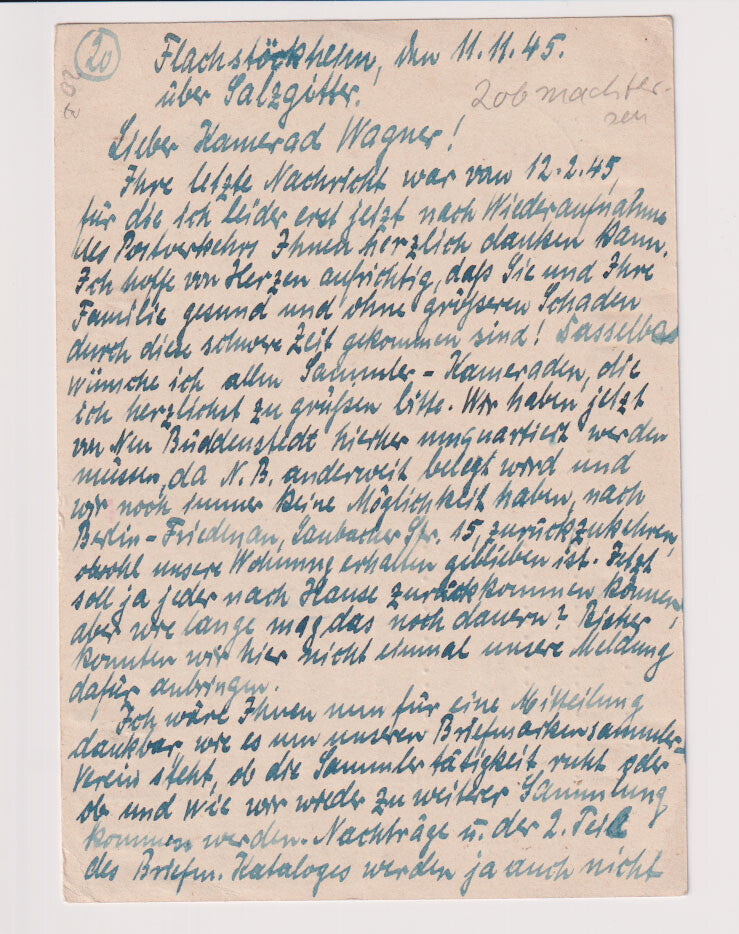 20
Flachstöckheim, den 11.11.45.
über Salzgitter.
Lobmachter-
sen
203
Lieber Kamerad Wagner!
Ihre letzte Nachricht war vom 12.2.45,
für die ich leider erst jetzt nach Wiederaufnahme
des Postverkehrs Ihnen herzlich danken kann.
Ich hoffe von Herzen aufrichtig, daß Sie und Ihre
Familie gesund und ohne größeren Schaden
durch diese schwere Zeit gekommen sind! Dasselbe
wünsche ich allen Sammler-Kameraden, die
ich herzlichst zu grüßen bitte. Wir haben jetzt
von Neu Büddenstedt hierher umquartiert werden
müssen, da N.B. anderweit belegt wird und
wir noch immer keine Möglichkeit haben, nach
Berlin-Friedenau, Laubacher Str. 15, zurückzukehren,
obwohl unsere Wohnung erhalten geblieben ist. Jetzt
soll ja jeder nach Hause zurückkommen können,
aber wie lange mag das noch dauern? Bisher
konnten wir hier nicht einmal unsere Meldung
dafür anbringen.
Ich wäre Ihnen nun für eine Mitteilung
dankbar, wie es um unseren Briefmarkensammler-
Verein steht, ob die Sammlertätigkeit ruht oder
ob und wie wir wieder zu weiterer Sammlung
kommen werden. Nachträge u. der 2. Teil
des Briefm. Kataloges werden ja auch nicht